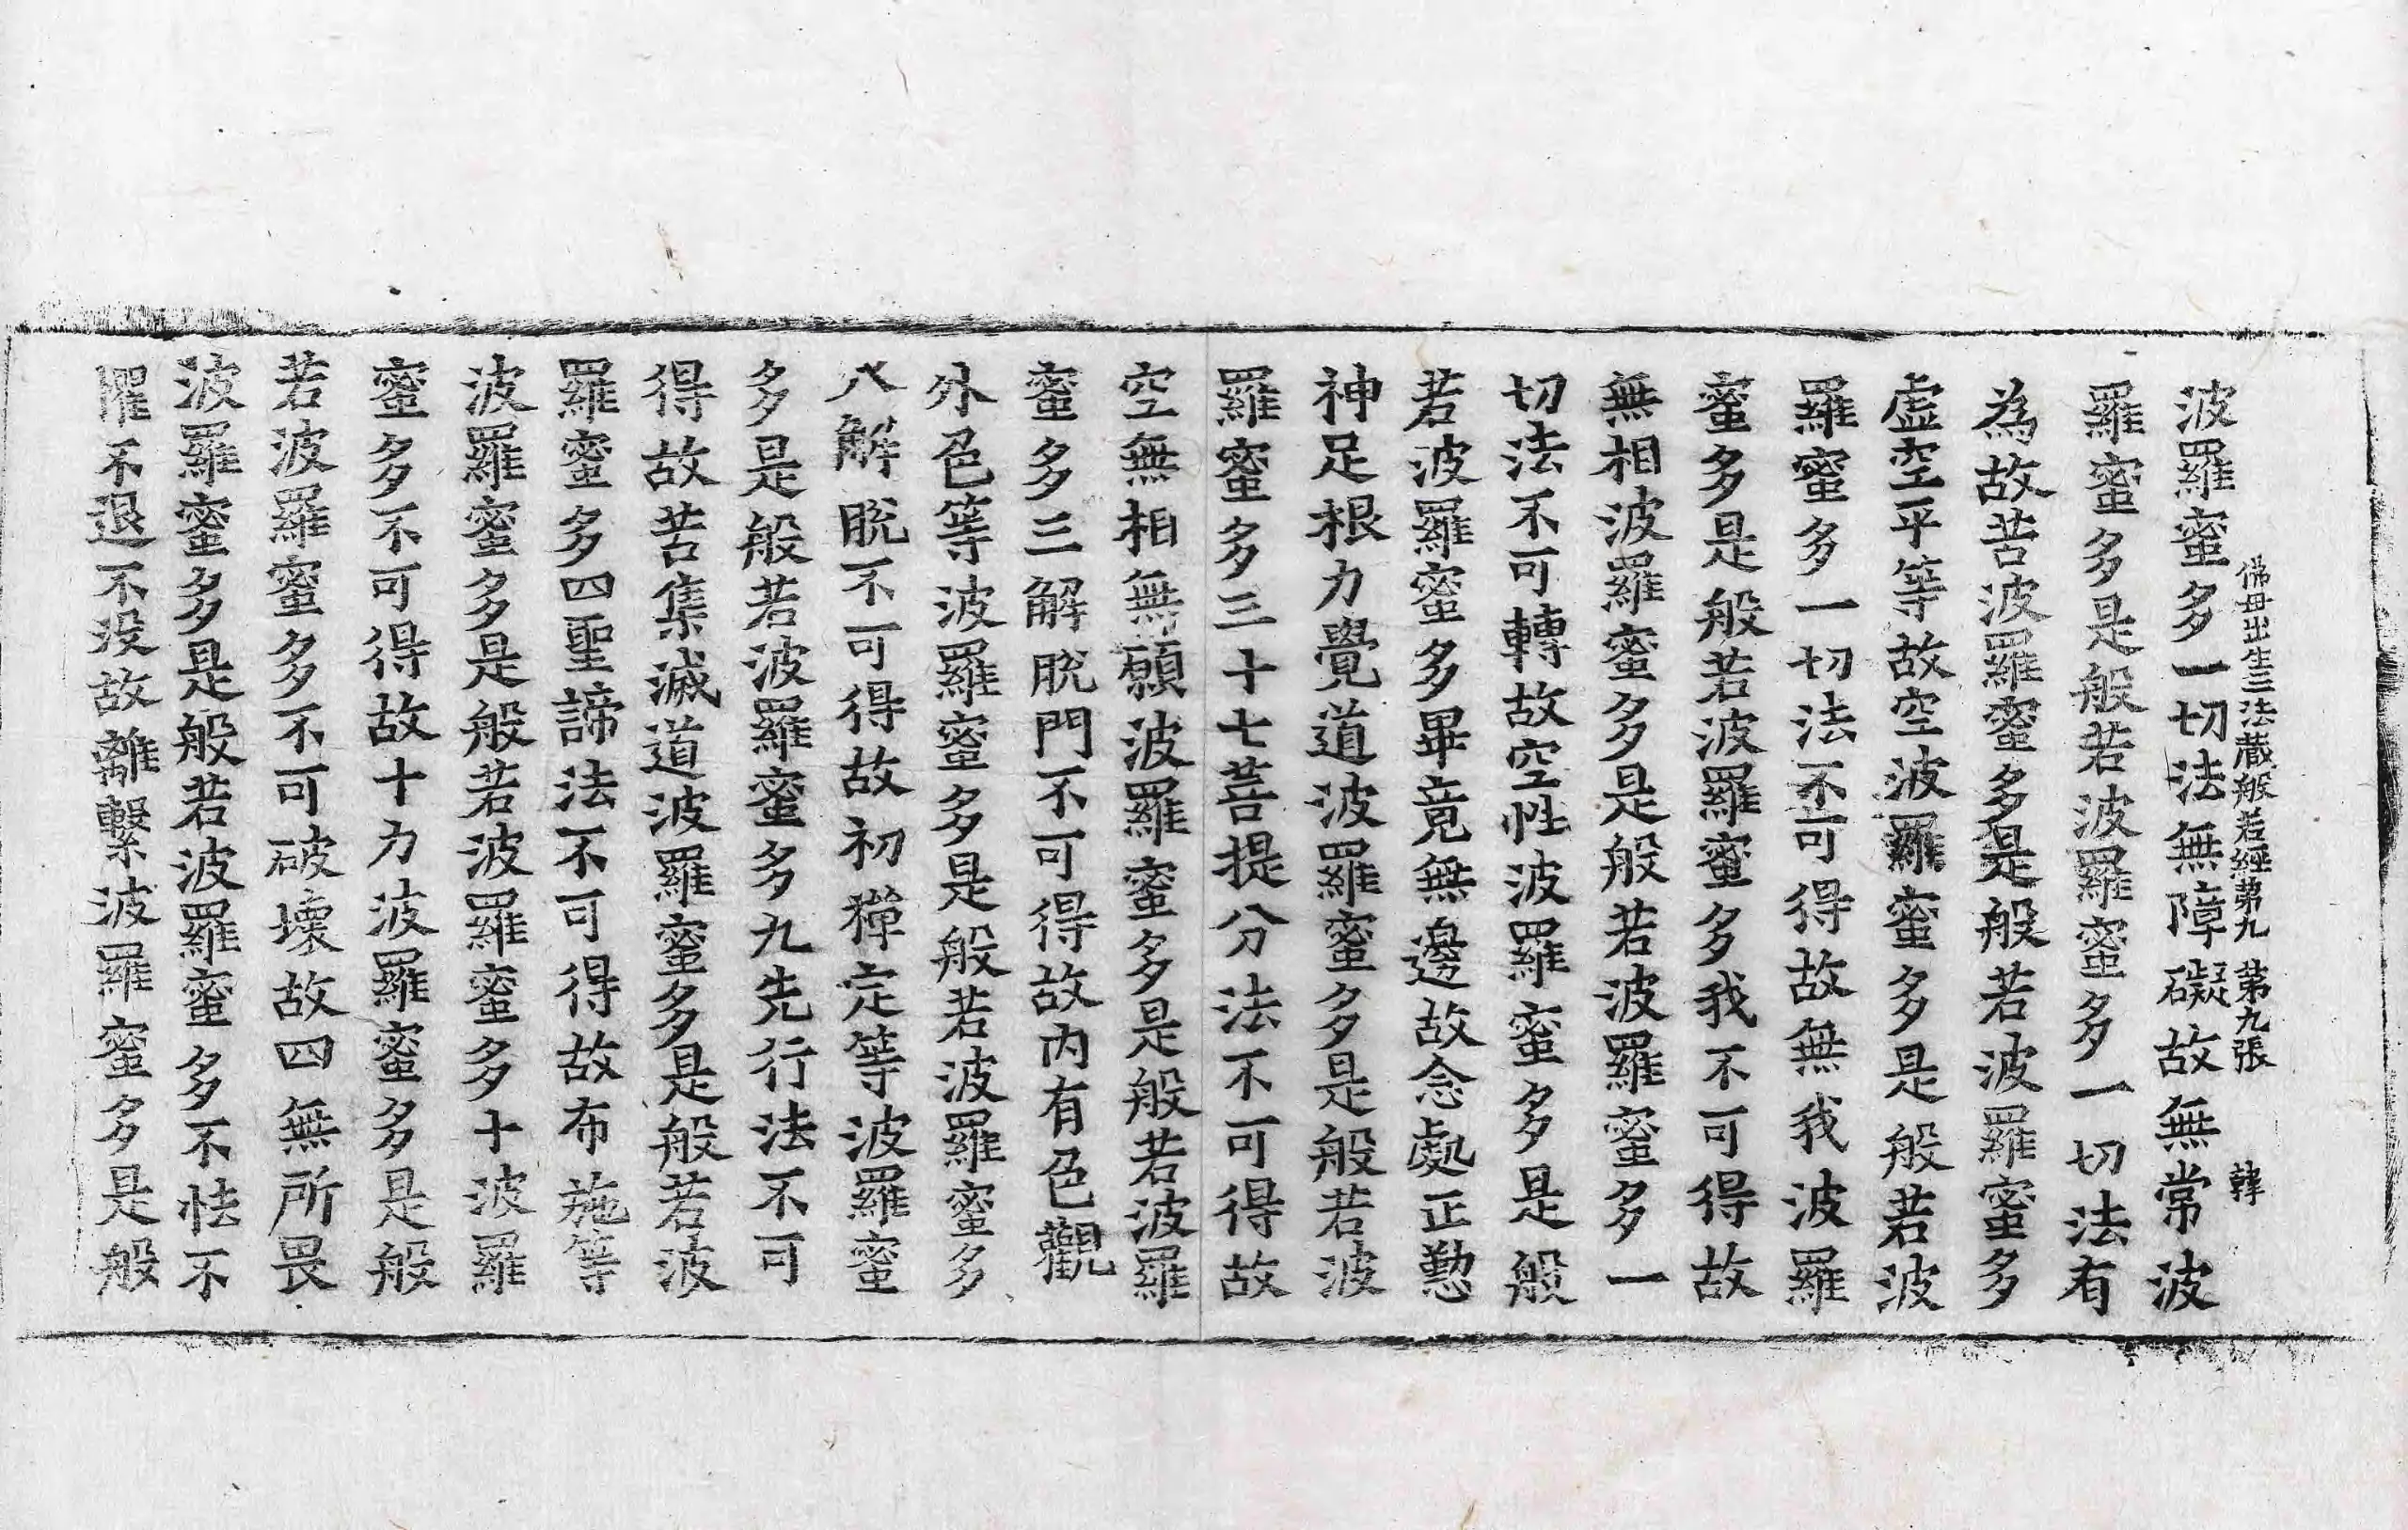 佛母出生三法藏般若經第九 第九張 韓
波羅蜜多一切法無障礙故無常波
羅蜜多是般若波羅蜜多一切法有
為故苦波羅蜜多是般若波羅蜜多
虛空平等故空波羅蜜多是般若波
羅蜜多一切法不可得故無我波羅
蜜多是般若波羅蜜多我不可得故
無相波羅蜜多是般若波羅蜜多一
切法不可轉故空性波羅蜜多是般
若波羅蜜多畢竟無邊故念處正懃
神足根力覺道波羅蜜多是般若波
羅蜜多三十七菩提分法不可得故
空無相無願波羅蜜多是般若波羅
蜜多三解脫門不可得故內有色觀
外色等波羅蜜多是般若波羅蜜多
八解脫不可得故初禪定等波羅蜜
多是般若波羅蜜多九先行法不可
得故苦集滅道波羅蜜多是般若波
羅蜜多四聖諦法不可得故布施等
波羅蜜多是般若波羅蜜多十波羅
蜜多不可得故十力波羅蜜多是般
若波羅蜜多不可破壞故四無所畏
波羅蜜多是般若波羅蜜多不怯不
懼不退不没故離繫波羅蜜多是般